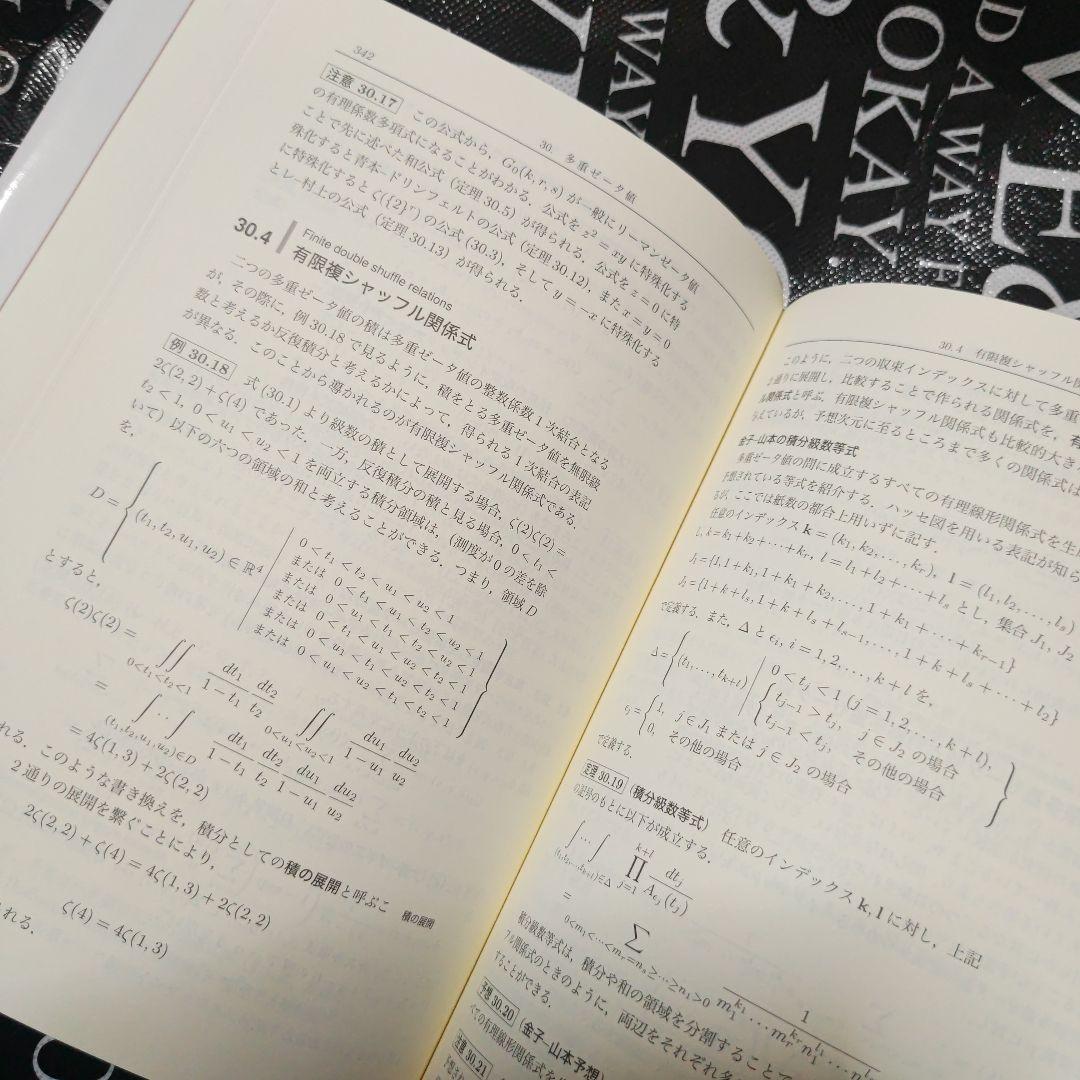 342
30. 多重ゼータ値
注意 30.17 この公式から,G₀(k, r, s) が一般にリーマンゼータ値
の有理係数多項式になることがわかる.公式を z² = xy に特殊化する
ことで先に述べた和公式 (定理 30.5) が得られる.公式を z = 0 に特
殊化すると青本–ドリンフェルトの公式 (定理 30.12),また x = y = 0
に特殊化すると ζ({2}ʳ) の公式 (30.3),そして y = −x に特殊化する
とレ–村上の公式 (定理 30.13) が得られる.
30.4
Finite double shuffle relations
有限複シャッフル関係式
二つの多重ゼータ値の積は多重ゼータ値の整数係数 1 次結合となる
が,その際に,例 30.18 で見るように,積をとる多重ゼータ値を無限級
数と考えるか反復積分と考えるかによって,得られる 1 次結合の表記
が異なる.このことから導かれるのが有限複シャッフル関係式である.
例 30.18 式 (30.1) より級数の積として展開する場合,ζ(2)ζ(2) =
2ζ(2, 2) + ζ(4) であった.一方,反復積分の積と見る場合,0 < t₁ <
t₂ < 1, 0 < u₁ < u₂ < 1 を両立する積分領域は,(測度が 0 の差を除
いて) 以下の六つの領域の和と考えることができる.つまり,領域 D
を,
D = { (t₁, t₂, u₁, u₂) ∈ ℝ⁴ |
0 < t₁ < t₂ < u₁ < u₂ < 1
または 0 < t₁ < u₁ < t₂ < u₂ < 1
または 0 < u₁ < t₁ < t₂ < u₂ < 1
または 0 < t₁ < u₁ < u₂ < t₂ < 1
または 0 < u₁ < t₁ < u₂ < t₂ < 1
または 0 < u₁ < u₂ < t₁ < t₂ < 1 }
とすると,
ζ(2)ζ(2) = ∬ 0<t₁<t₂<1 dt₁/(1 − t₁) dt₂/t₂ ∬ 0<u₁<u₂<1 du₁/(1 − u₁) du₂/u₂
= ∫‥∫ (t₁,t₂,u₁,u₂)∈D dt₁/(1 − t₁) dt₂/t₂ du₁/(1 − u₁) du₂/u₂
= 4ζ(1, 3) + 2ζ(2, 2)
れる.このような書き換えを,積分としての積の展開と呼ぶこ
積の展開
2 通りの展開を繋ぐことにより,
2ζ(2, 2) + ζ(4) = 4ζ(1, 3) + 2ζ(2, 2)
ζ(4) = 4ζ(1, 3)
れる.
30.4 有限複シャッフル関
このように,二つの収束インデックスに対して多重
2 通りに展開し,比較することで作られる関係式を,有
ル関係式と呼ぶ.有限複シャッフル関係式も比較的大き
与えているが,予想次元に至るところまで多くの関係式は
金子–山本の積分級数等式
多重ゼータ値の間に成立するすべての有理線形関係式を生
予想されている等式を紹介する.ハッセ図を用いる表記が知ら
るが,ここでは紙数の都合上用いずに記す.
任意のインデックス k = (k₁, k₂, . . . , kᵣ), l = (l₁, l₂, . . . , lₛ)
し, k = k₁ + k₂ + · · · + kᵣ, l = l₁ + l₂ + · · · + lₛ とし,集合 J₁, J₂
J₁ = {1, 1 + k₁, 1 + k₁ + k₂, . . . , 1 + k₁ + · · · + kᵣ₋₁}
J₂ = {1 + k + lₛ, 1 + k + lₛ + lₛ₋₁, . . . , 1 + k + lₛ + · · · + l₂}
で定義する.また,Δ と ϵᵢ, i = 1, 2, . . . , k + l を,
Δ = { (t₁, . . . , tₖ₊ₗ) |
0 < tⱼ < 1 (j = 1, 2, . . . , k + l),
tⱼ₋₁ > tⱼ, j ∈ J₂ の場合
tⱼ₋₁ < tⱼ, その他の場合 }
ϵⱼ = { 1, j ∈ J₁ または j ∈ J₂ の場合
0, その他の場合
で定義する.
定理 30.19 (積分級数等式) 任意のインデックス k, l に対し,上記
の記号のもとに以下が成立する.
∫···∫ (t₁,t₂,...,tₖ₊ₗ)∈Δ ∏ j=1 k+l dtⱼ/A_ϵⱼ(tⱼ)
= ∑ 0<m₁<···<mᵣ=nₛ≥···≥n₁>0 1/(m₁^k₁ · · · mᵣ^kᵣ n₁^l₁ · · · nₛ
積分級数等式は,積分や和の領域を分割することで
フル関係式のときのように,両辺をそれぞれ多
することができる.
予想 30.20 (金子–山本予想)
べての有理線形関係式を
注意 30.21